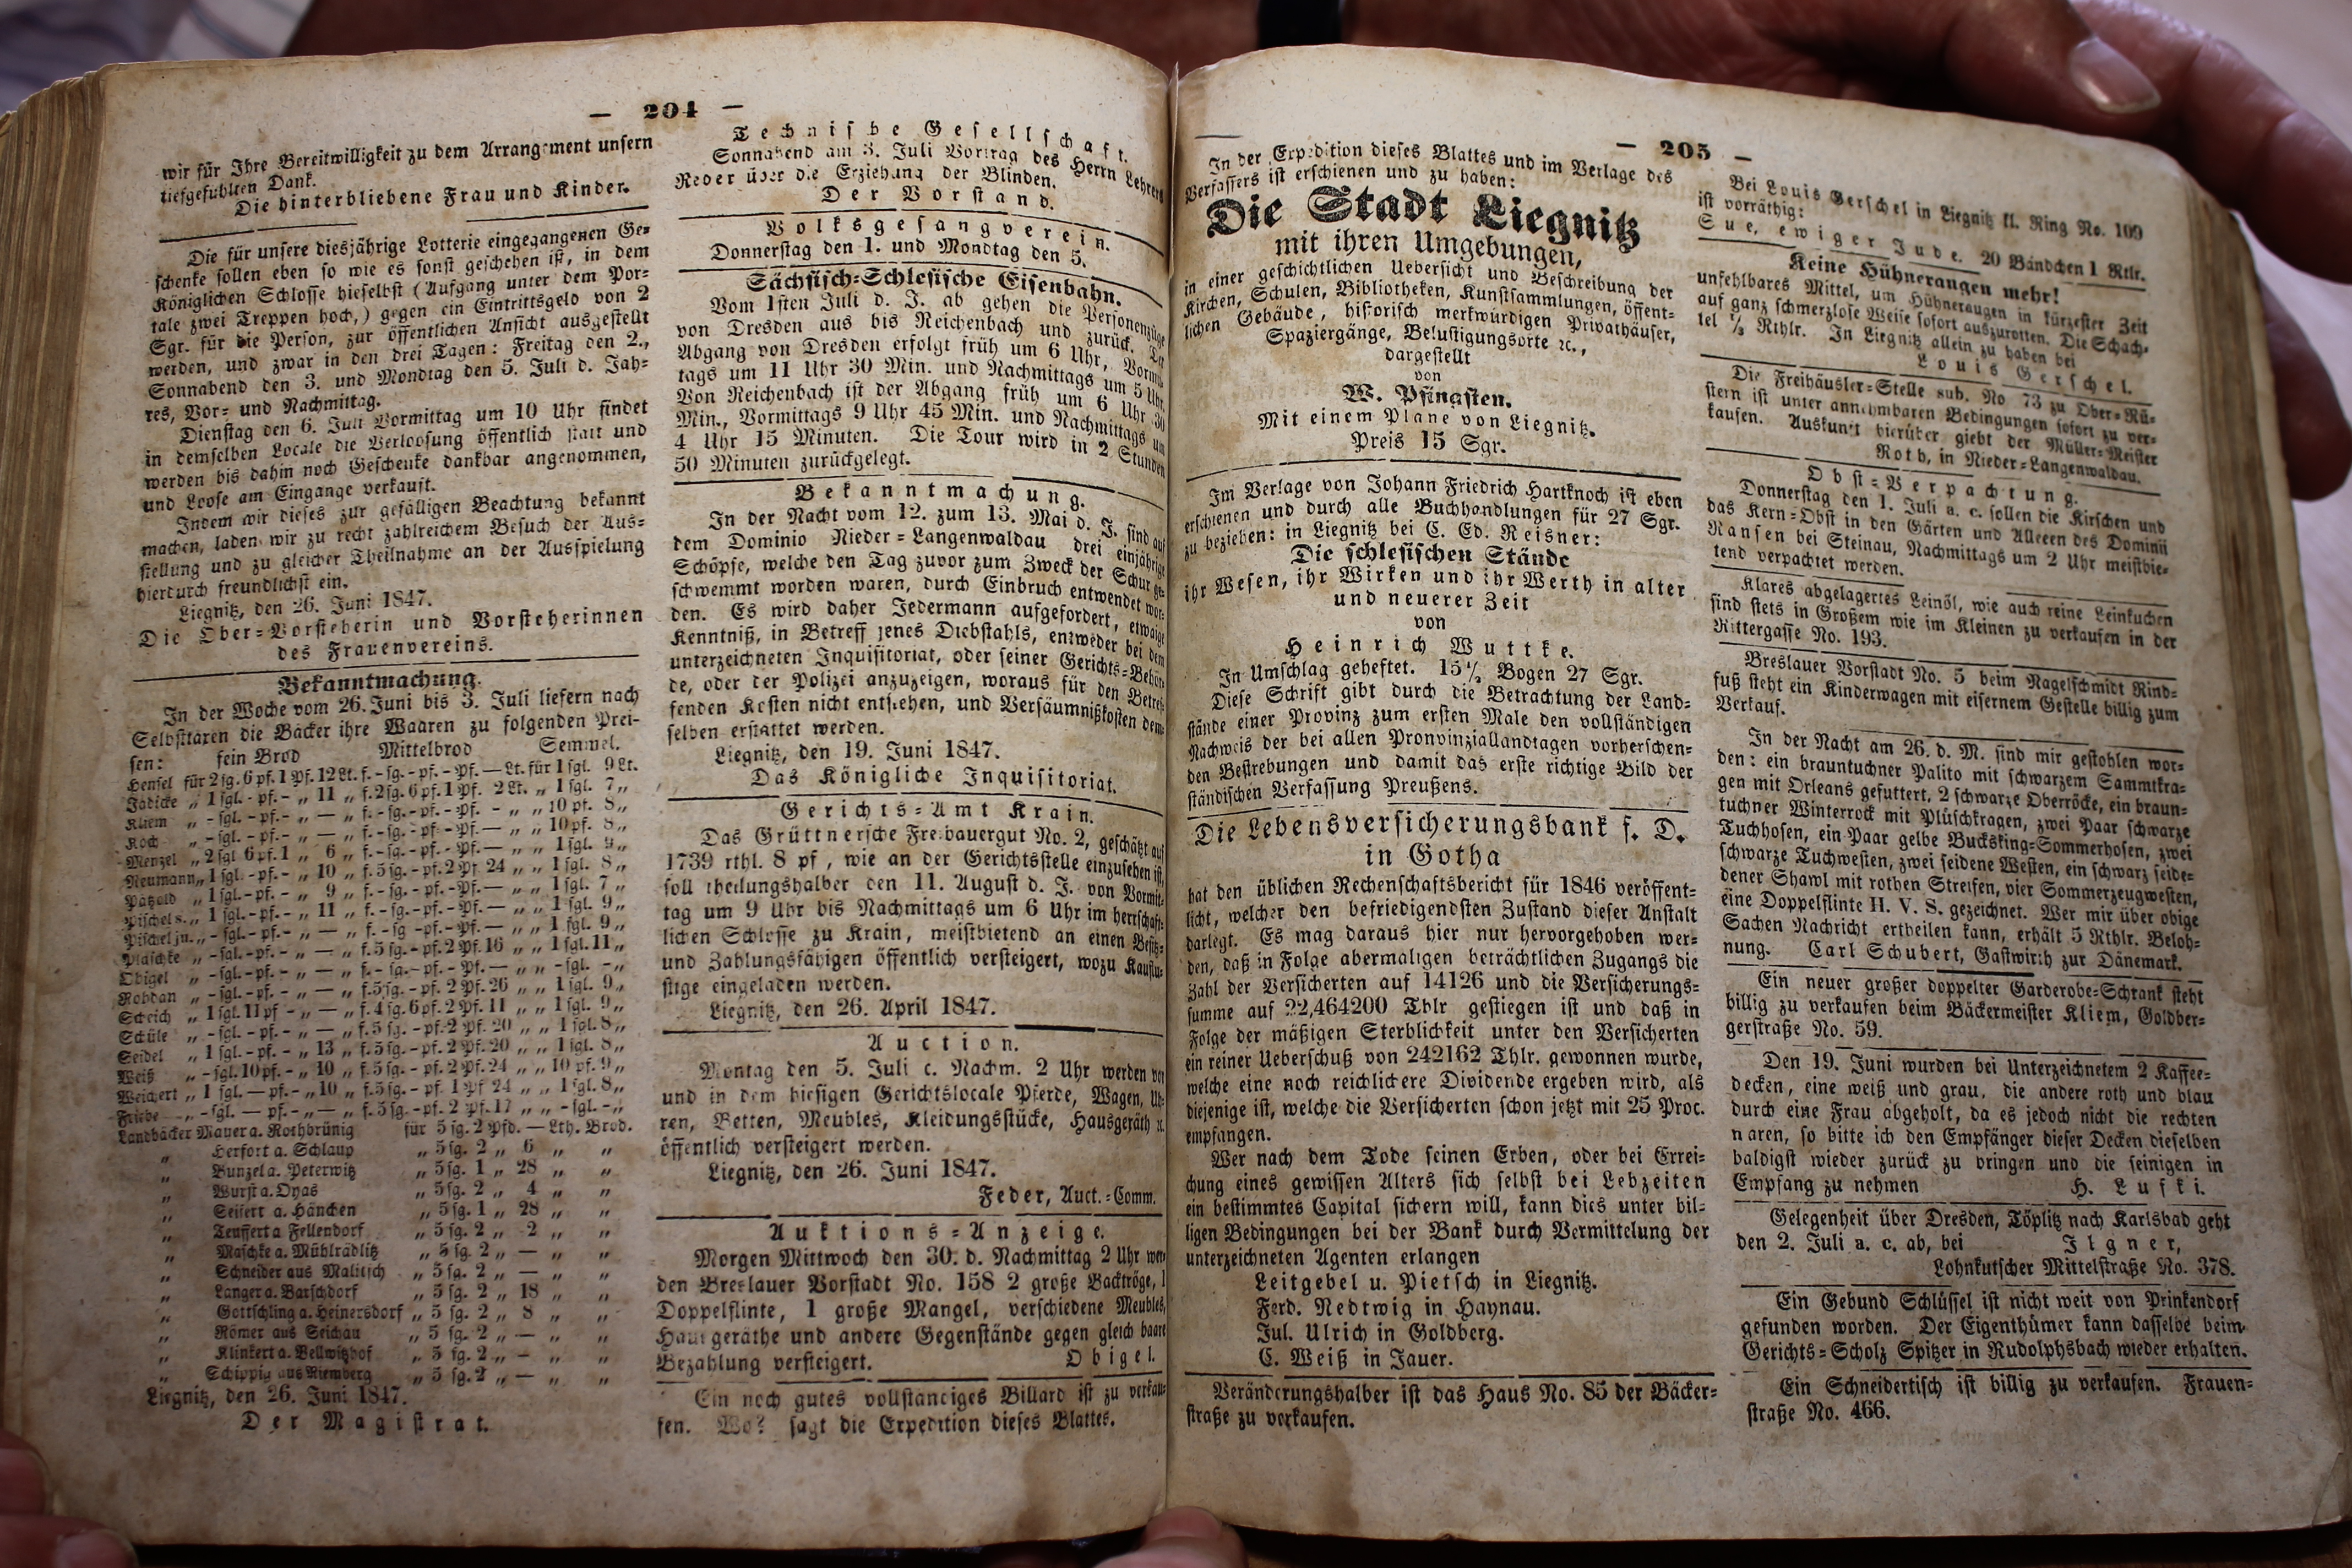 — 204 —
wir für Ihre Bereitwilligkeit zu dem Arrangement unsern
tiefgefühlten Dank.
Die hinterbliebene Frau und Kinder.
Die für unsere diesjährige Lotterie eingegangenen Ge=
schenke sollen eben so wie es sonst geschehen ist, in dem
Königlichen Schlosse hieselbst (Aufgang unter dem Por=
tale zwei Treppen hoch,) gegen ein Eintrittsgeld von 2
Sgr. für die Person, zur öffentlichen Ansicht ausgestellt
werden, und zwar in den drei Tagen: Freitag den 2.,
Sonnabend den 3. und Mondtag den 5. Juli d. Jah=
res, Vor= und Nachmittag.
Dienstag den 6. Juli Vormittag um 10 Uhr findet
in demselben Locale die Verloosung öffentlich statt und
werden bis dahin noch Geschenke dankbar angenommen,
und Loose am Eingange verkauft.
Indem wir dieses zur gefälligen Beachtung bekannt
machen, laden wir zu recht zahlreichem Besuch der Aus=
stellung und zu gleicher Theilnahme an der Ausspielung
hierdurch freundlichst ein.
Liegnitz, den 26. Juni 1847.
Die Ober=Vorsteherin und Vorsteherinnen
des Frauenvereins.
Bekanntmachung.
In der Woche vom 26. Juni bis 3. Juli liefern nach
Selbsttaxen die Bäcker ihre Waaren zu folgenden Prei=
sen: fein Brod Mittelbrod Semmel.
Hensel für 2sg. 6pf. 1Pf. 12Lt. f. -sg. -pf. -Pf. — Lt. für 1sgl. 9Lt.
Jädicke „ 1sgl. -pf. - „ 11 „ f. 2sg. 6pf. 1Pf. 2Lt. „ 1sgl. 7„
Kliem „ -sgl. -pf. - „ — „ f. -sg. -pf. -Pf. - „ „ 10pf. 8„
Koch „ -sgl. -pf. - „ — „ f. -sg. -pf. -Pf. — „ „ 10pf. 8„
Menzel „ 2sgl 6pf. 1 „ 6 „ f. -sg. -pf. -Pf. — „ „ 1sgl. 9„
Neumann „ 1sgl. -pf. - „ 10 „ f. 5sg. -pf. 2Pf 24 „ „ 1sgl. 8„
Pätzold „ 1sgl. -pf. - „ 9 „ f. -sg. -pf. -Pf. — „ „ 1sgl. 7„
Pischel s. „ 1sgl. -pf. - „ 11 „ f. -sg. -pf. -Pf. — „ „ 1sgl. 9„
Pischel ju. „ -sgl. -pf. - „ — „ f. -sg -pf. -Pf. — „ „ 1sgl. 9„
Plaschke „ -sgl. -pf. - „ — „ f. 5sg. -pf. 2Pf. 16 „ „ 1sgl. 11„
Obigel „ -sgl. -pf. - „ — „ f. -sg. -pf. -Pf. — „ „ -sgl. -„
Robdan „ -sgl. -pf. - „ — „ f. 5sg. -pf. 2Pf. 26 „ „ 1sgl. 9„
Scheich „ 1sgl. 11pf - „ — „ f. 4sg. 6pf. 2Pf. 11 „ „ 1sgl. 9„
Schüle „ -sgl. -pf. - „ — „ f. 5sg. -pf. 2Pf. 20 „ „ 1sgl. 8„
Seidel „ 1sgl. -pf. - „ 13 „ f. 5sg. -pf. 2Pf. 20 „ „ 1sgl. 8„
Weiß „ -sgl. 10pf. - „ 10 „ f. 5sg. -pf. 2Pf. 24 „ „ 10pf. 9„
Weichert „ 1sgl. —pf. - „ 10 „ f. 5sg. -pf. 1Pf 24 „ „ 1sgl. 8„
Friebe „ -sgl. —pf. - „ — „ f. 5sg. -pf. 2Pf. 17 „ „ -sgl. -„
Landbäcker Mauer a. Rothbrünig für 5sg. 2Pfd. — Lth. Brod.
„ Herfort a. Schlaup „ 5sg. 2 „ 6 „ „
„ Bunzel a. Peterwitz „ 5sg. 1 „ 28 „ „
„ Wurst a. Oyas „ 5sg. 2 „ 4 „ „
„ Seifert a. Hänchen „ 5sg. 1 „ 28 „ „
„ Teuffert a Fellendorf „ 5sg. 2 „ 2 „ „
„ Maschke a. Mühlrädlitz „ 5sg. 2 „ — „ „
„ Schneider aus Malitsch „ 5sg. 2 „ — „ „
„ Langer a. Barschdorf „ 5sg. 2 „ 18 „ „
„ Gottschling a. Heinersdorf „ 5sg. 2 „ 8 „ „
„ Römer aus Seichau „ 5sg. 2 „ — „ „
„ Klinkert a. Bellwitzhof „ 5sg. 2 „ - „ „
„ Schippig aus Riemberg „ 5sg. 2 „ — „ „
Liegnitz, den 26. Juni 1847.
Der Magistrat.
Technische Gesellschaft.
Sonnabend am 3. Juli Vortrag des Herrn Lehrers
Reder über die Erziehung der Blinden.
Der Vorstand.
Volksgesangverein.
Donnerstag den 1. und Mondtag den 5.
Sächsisch=Schlesische Eisenbahn.
Vom 1sten Juli d. J. ab gehen die Personenzüge
von Dresden aus bis Reichenbach und zurück. Der
Abgang von Dresden erfolgt früh um 6 Uhr, Vormit
tags um 11 Uhr 30 Min. und Nachmittags um 5 Uhr.
Von Reichenbach ist der Abgang früh um 6 Uhr 30
Min., Vormittags 9 Uhr 45 Min. und Nachmittags um
4 Uhr 15 Minuten. Die Tour wird in 2 Stunden
50 Minuten zurückgelegt.
Bekanntmachung.
In der Nacht vom 12. zum 13. Mai d. J. sind auf
dem Dominio Nieder=Langenwaldau drei einjährige
Schöpse, welche den Tag zuvor zum Zweck der Schur ge=
schwemmt worden waren, durch Einbruch entwendet wor=
den. Es wird daher Jedermann aufgefordert, etwaige
Kenntniß, in Betreff jenes Diebstahls, entweder bei dem
unterzeichneten Inquisitoriat, oder seiner Gerichts=Behör
de, oder der Polizei anzuzeigen, woraus für den Betref
fenden Kosten nicht entstehen, und Versäumnißkosten dem=
selben erstattet werden.
Liegnitz, den 19. Juni 1847.
Das Königliche Inquisitoriat.
Gerichts=Amt Krain.
Das Grüttnersche Freibauergut No. 2, geschätzt auf
1739 rthl. 8 pf, wie an der Gerichtsstelle einzusehen ist,
soll theilungshalber den 11. August d. J. von Vormit=
tag um 9 Uhr bis Nachmittags um 6 Uhr im herrschaft=
lichen Schlosse zu Krain, meistbietend an einen Besitz=
und Zahlungsfähigen öffentlich versteigert, wozu Kauflu=
stige eingeladen werden.
Liegnitz, den 26. April 1847.
Auction.
Montag den 5. Juli c. Nachm. 2 Uhr werden vor
und in dem hiesigen Gerichtslocale Pferde, Wagen, Uh=
ren, Betten, Meubles, Kleidungsstücke, Hausgeräth ꝛc.
öffentlich versteigert werden.
Liegnitz, den 26. Juni 1847.
Feder, Auct.=Comm.
Auktions=Anzeige.
Morgen Mittwoch den 30. d. Nachmittag 2 Uhr wer=
den Breslauer Vorstadt No. 158 2 große Backtröge, 1
Doppelflinte, 1 große Mangel, verschiedene Meubles,
Hausgeräthe und andere Gegenstände gegen gleich baare
Bezahlung versteigert. Obigel.
Ein noch gutes vollständiges Billard ist zu verkau=
fen. Wo? sagt die Expedition dieses Blattes.
— 205 —
In der Expedition dieses Blattes und im Verlage des
Verfassers ist erschienen und zu haben:
Die Stadt Liegnitz
mit ihren Umgebungen,
in einer geschichtlichen Uebersicht und Beschreibung der
Kirchen, Schulen, Bibliotheken, Kunstsammlungen, öffent=
lichen Gebäude, historisch merkwürdigen Privathäuser,
Spaziergänge, Belustigungsorte ꝛc.,
dargestellt
von
W. Pfingsten.
Mit einem Plane von Liegnitz.
Preis 15 Sgr.
Im Verlage von Johann Friedrich Hartknoch ist eben
erschienen und durch alle Buchhandlungen für 27 Sgr.
zu beziehen: in Liegnitz bei C. Ed. Reisner:
Die schlesischen Stände
ihr Wesen, ihr Wirken und ihr Werth in alter
und neuerer Zeit
von
Heinrich Wuttke.
In Umschlag geheftet. 15½ Bogen 27 Sgr.
Diese Schrift gibt durch die Betrachtung der Land=
stände einer Provinz zum ersten Male den vollständigen
Nachweis der bei allen Pronvinziallandtagen vorherschen=
den Bestrebungen und damit das erste richtige Bild der
ständischen Verfassung Preußens.
Die Lebensversicherungsbank f. D.
in Gotha
hat den üblichen Rechenschaftsbericht für 1846 veröffent=
licht, welcher den befriedigendsten Zustand dieser Anstalt
darlegt. Es mag daraus hier nur hervorgehoben wer=
den, daß in Folge abermaligen beträchtlichen Zugangs die
Zahl der Versicherten auf 14126 und die Versicherungs=
summe auf 22,464200 Thlr gestiegen ist und daß in
Folge der mäßigen Sterblichkeit unter den Versicherten
ein reiner Ueberschuß von 242162 Thlr. gewonnen wurde,
welche eine noch reichlichere Dividende ergeben wird, als
diejenige ist, welche die Versicherten schon jetzt mit 25 Proc.
empfangen.
Wer nach dem Tode seinen Erben, oder bei Errei=
chung eines gewissen Alters sich selbst bei Lebzeiten
ein bestimmtes Capital sichern will, kann dies unter bil=
ligen Bedingungen bei der Bank durch Vermittelung der
unterzeichneten Agenten erlangen
Leitgebel u. Pietsch in Liegnitz.
Ferd. Nedtwig in Haynau.
Jul. Ulrich in Goldberg.
C. Weiß in Jauer.
Veränderungshalber ist das Haus No. 85 der Bäcker=
straße zu verkaufen.
Bei Louis Gerschel in Liegnitz kl. Ring No. 109
ist vorräthig:
Sue, ewiger Jude. 20 Bändchen 1 Rtlr.
Keine Hühneraugen mehr!
unfehlbares Mittel, um Hühneraugen in kürzester Zeit
auf ganz schmerzlose Weise sofort auszurotten. Die Schach=
tel ⅓ Rthlr. In Liegnitz allein zu haben bei
Louis Gerschel.
Die Freihäusler=Stelle sub. No 73 zu Ober=Rü=
stern ist unter annehmbaren Bedingungen sofort zu ver=
kaufen. Auskunft hierüber giebt der Müller=Meister
Roth, in Nieder=Langenwaldau.
Obst=Verpachtung.
Donnerstag den 1. Juli a. c. sollen die Kirschen und
das Kern=Obst in den Gärten und Alleeen des Dominii
Ransen bei Steinau, Nachmittags um 2 Uhr meistbie=
tend verpachtet werden.
Klares abgelagertes Leinöl, wie auch reine Leinkuchen
sind stets in Großem wie im Kleinen zu verkaufen in der
Rittergasse No. 193.
Breslauer Vorstadt No. 5 beim Nagelschmidt Rind=
fuß steht ein Kinderwagen mit eisernem Gestelle billig zum
Verkauf.
In der Nacht am 26. d. M. sind mir gestohlen wor=
den: ein brauntuchner Palito mit schwarzem Sammtkra=
gen mit Orleans gefuttert, 2 schwarze Oberröcke, ein braun=
tuchner Winterrock mit Plüschkragen, zwei Paar schwarze
Tuchhosen, ein Paar gelbe Bucksking=Sommerhosen, zwei
schwarze Tuchwesten, zwei seidene Westen, ein schwarz seide=
dener Shawl mit rothen Streifen, vier Sommerzeugwesten,
eine Doppelflinte H. V. S. gezeichnet. Wer mir über obige
Sachen Nachricht ertheilen kann, erhält 5 Rthlr. Beloh=
nung. Carl Schubert, Gastwirth zur Dänemark.
Ein neuer großer doppelter Garderobe=Schrank steht
billig zu verkaufen beim Bäckermeister Kliem, Goldber=
gerstraße No. 59.
Den 19. Juni wurden bei Unterzeichnetem 2 Kaffee=
decken, eine weiß und grau, die andere roth und blau
durch eine Frau abgeholt, da es jedoch nicht die rechten
waren, so bitte ich den Empfänger dieser Decken dieselben
baldigst wieder zurück zu bringen und die seinigen in
Empfang zu nehmen H. Lufki.
Gelegenheit über Dresden, Töplitz nach Karlsbad geht
den 2. Juli a. c. ab, bei Ilgner,
Lohnkutscher Mittelstraße No. 378.
Ein Gebund Schlüssel ist nicht weit von Prinkendorf
gefunden worden. Der Eigenthümer kann dasselbe beim
Gerichts=Scholz Spitzer in Rudolphsbach wieder erhalten.
Ein Schneidertisch ist billig zu verkaufen. Frauen=
straße No. 466.